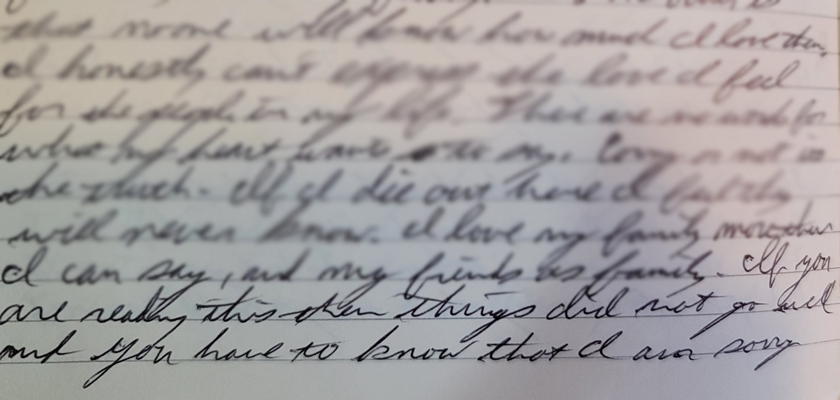 that noone will know how much I love them.
I honestly can't express the love I feel
for the people in my life. There are no words for
what my heart wants to say. Corny or not is
the truth. If I die out here I feel they
will never know. I love my family more than
I can say, and my friends as family. If you
are reading this then things did not go well
and you have to know that I am sorry